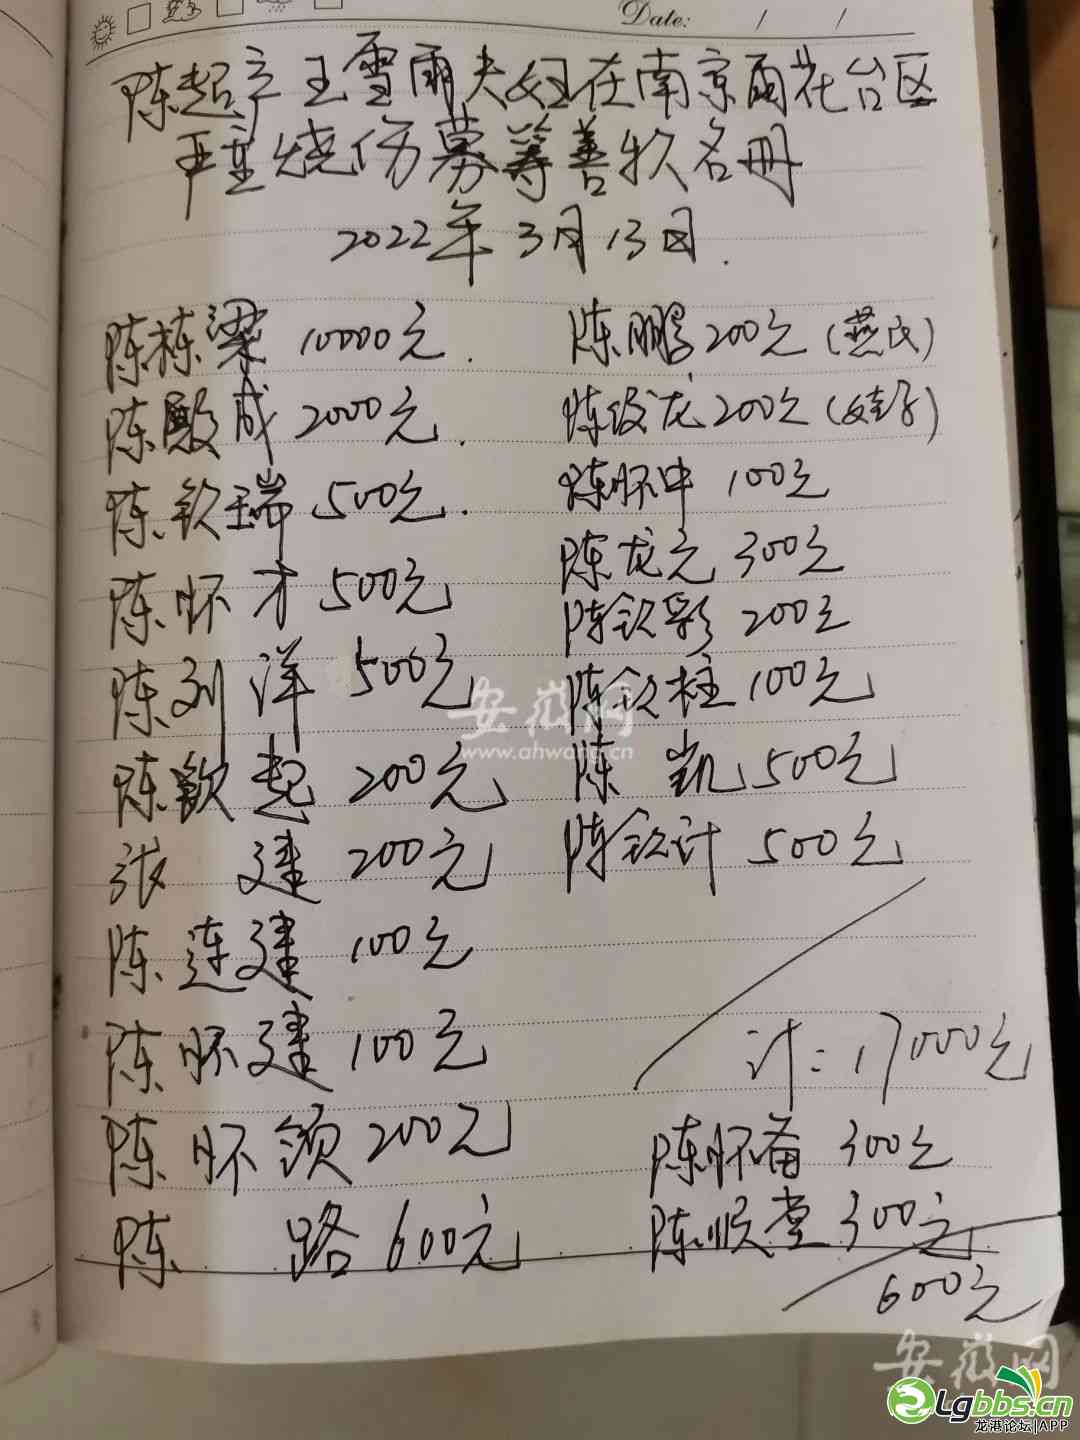 Date: / /
陈超 王雪雨夫妇在南京雨花台区
严重烧伤募筹善款名册
2022年3月13日.
陈栋梁 10000元.
陈殿成 2000元.
陈钦瑞 500元.
陈怀才 500元
陈列洋 500元
陈钦超 200元
张 建 200元
陈连建 100元
陈怀建 100元
陈怀领 200元
陈 路 600元
陈鹏 200元(燕氏)
陈俊龙 200元
陈怀中 100元
陈龙元 300元
陈钦彩 200元
陈钦柱 100元
陈 凯 500元
陈钦计 500元
计:17000元
陈怀备 300元
陈顺堂 300元
600元
安徽网
www.ahwang.cn
安徽网
Lgbbs.cn
龙港论坛|APP